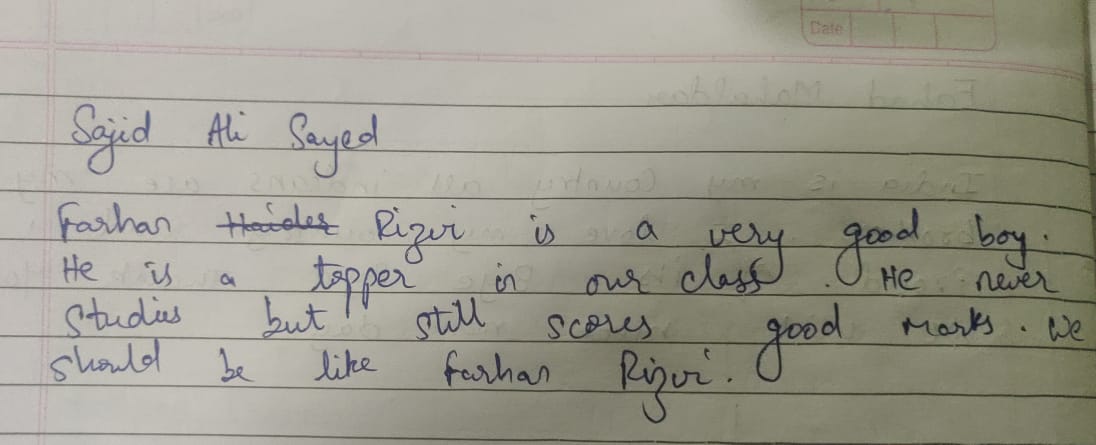 Date
Sajid Ali Sayed
Farhan Haider Rizvi is a very good boy.
He is a topper in our class. He never
studies but still scores good marks. We
should be like Farhan Rizvi.